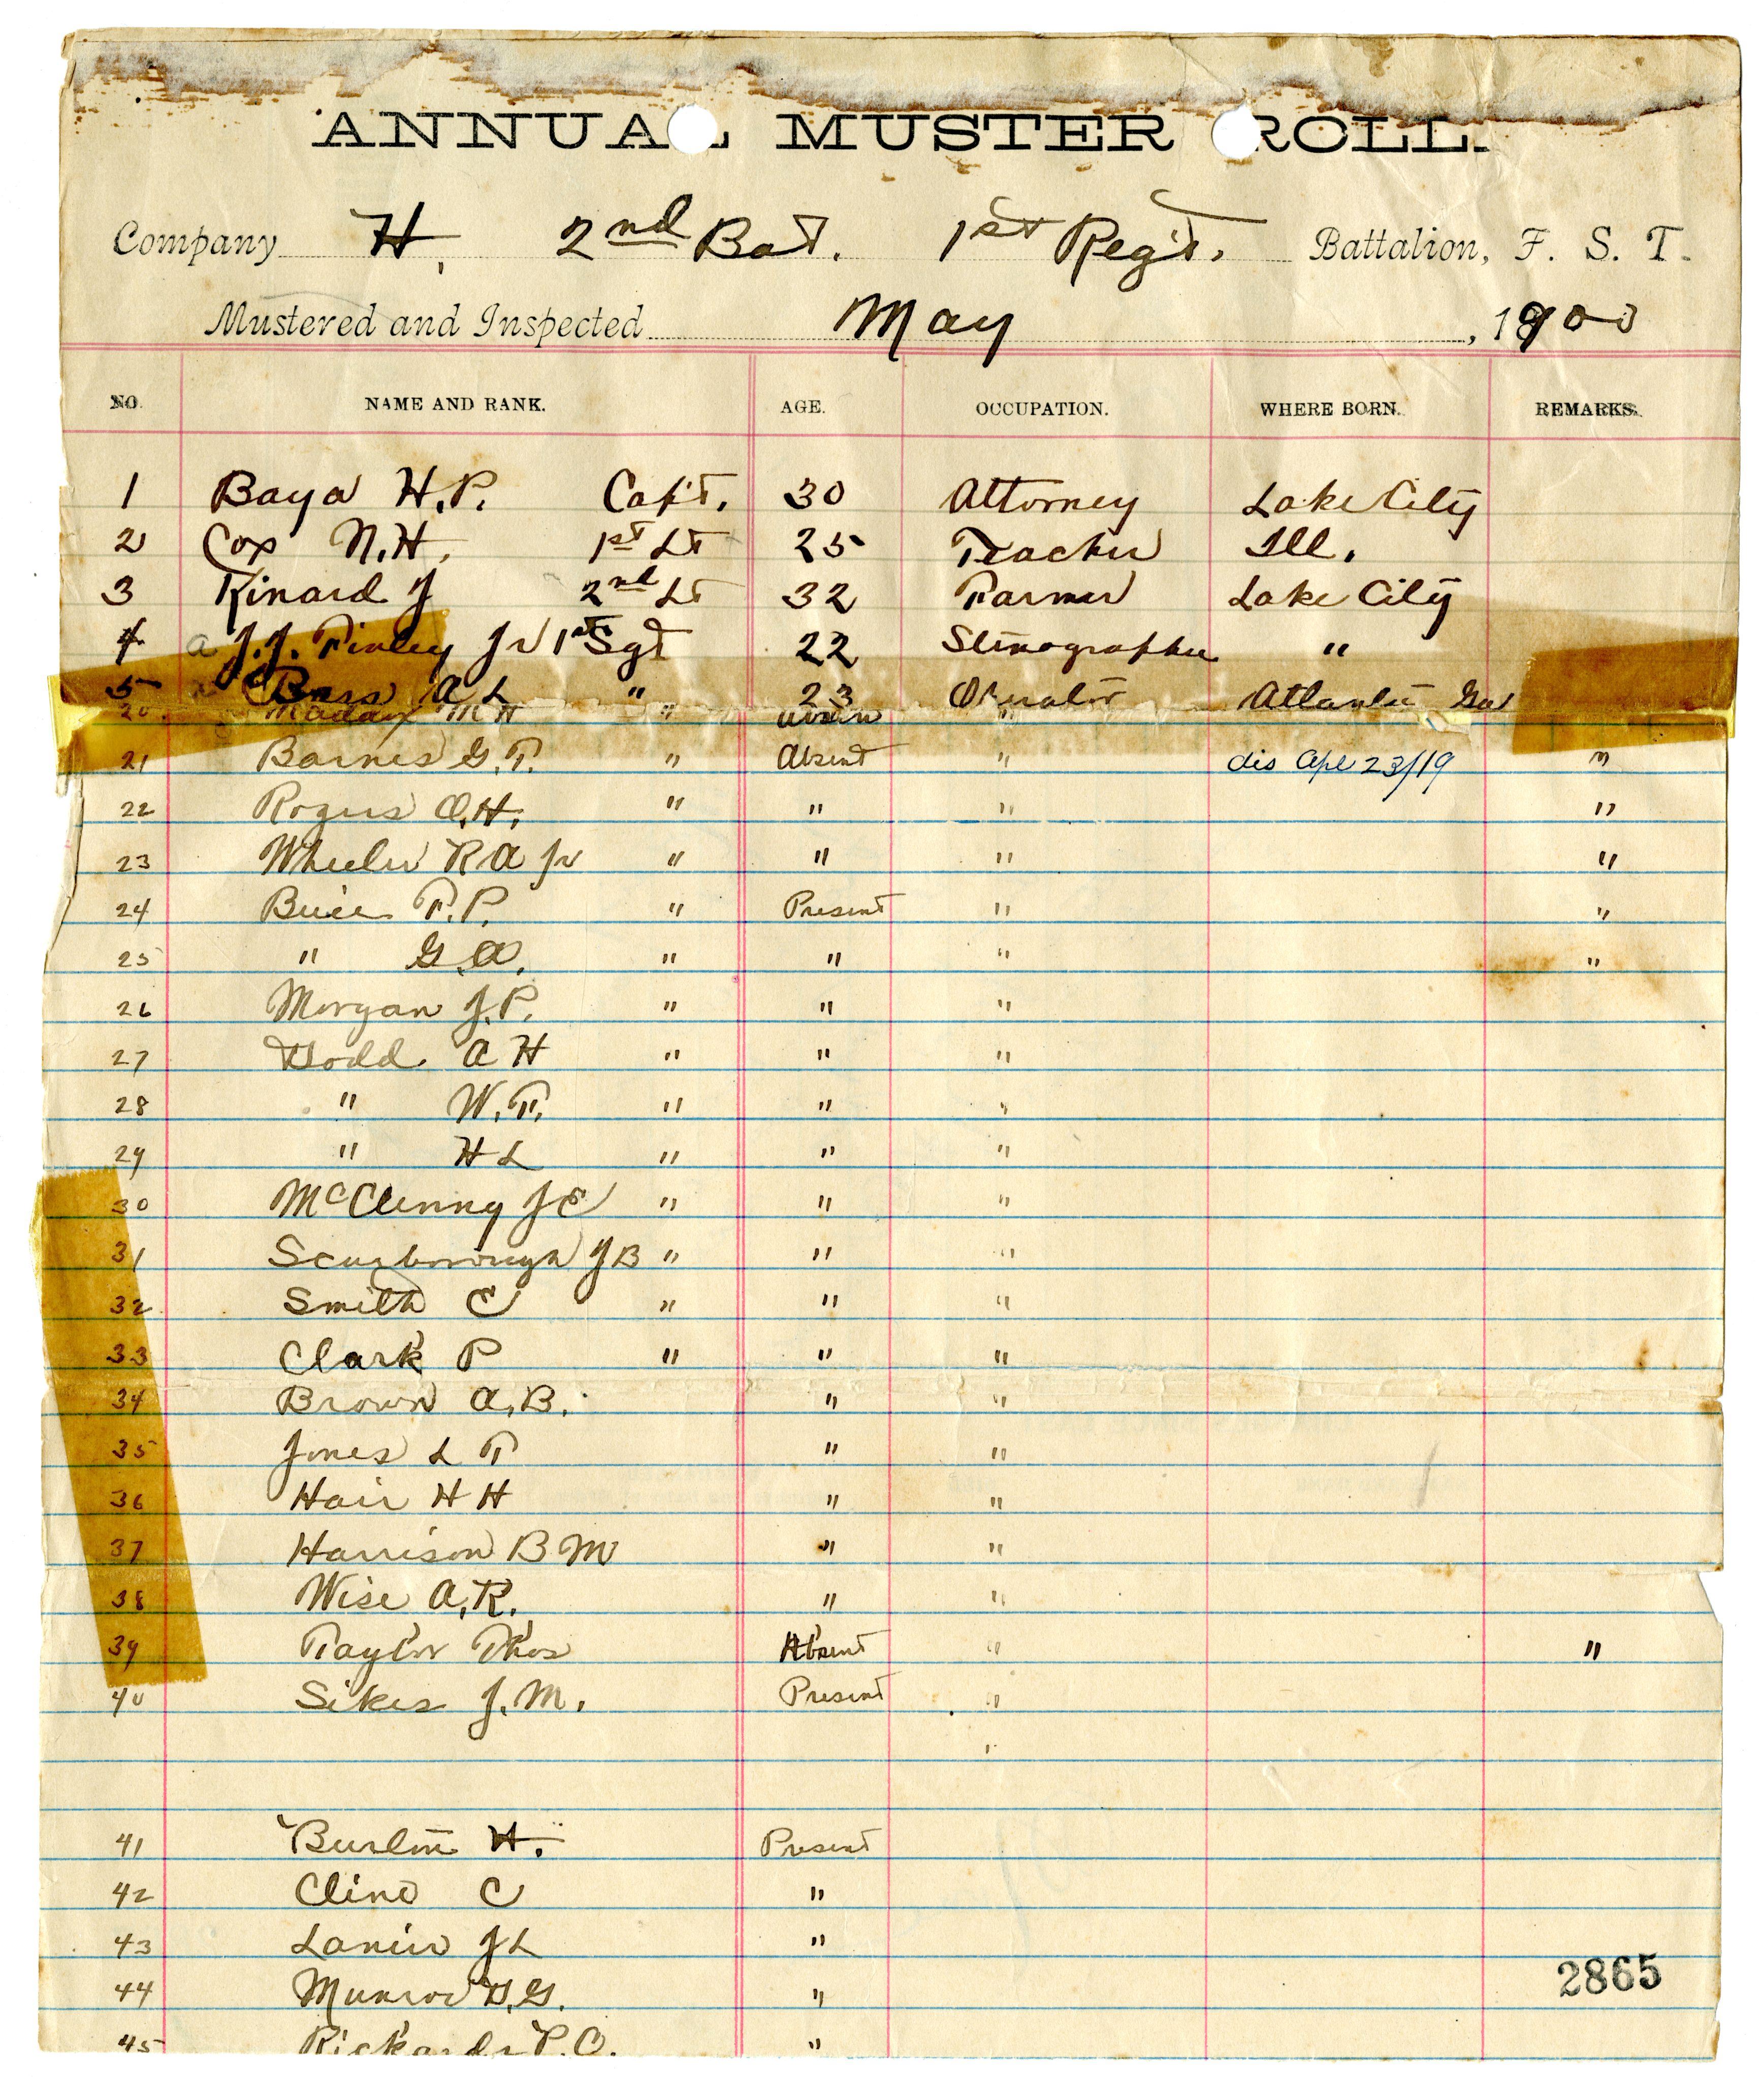 ANNUAL MUSTER ROLL.
Company H, 2nd Bat. 1st Reg't. Battalion, F. S. T.
Mustered and Inspected May, 1900
NO. NAME AND RANK. AGE. OCCUPATION. WHERE BORN. REMARKS.
1 Baya H.P. Capt. 30 Attorney Lake City
2 Cox N.H. 1st Lt 25 Teacher Ill.
3 Kinard J 2nd Lt 32 Farmer Lake City
4 a J.J. Finley Jr 1st Sgt 22 Stenographer "
5 Bass A L " 23 Operator Atlanta Ga
20 Maddox M H " "
21 Barnes G.T. " Absent " dis Apl 23/19 "
22 Rogers O.H. " " " "
23 Wheeler R A Jr " " " "
24 Buie T.P. " Present " "
25 " G.A. " " " "
26 Morgan J.P. " " "
27 Dodd A H " " "
28 " W.T. " " "
29 " H L " " "
30 McClenny J E " " "
31 Scarborough J B " " "
32 Smith C " " "
33 Clark P " " "
34 Brown A.B. " "
35 Jones L T " "
36 Hair H H " "
37 Harrison B M " "
38 Wise A.R. " "
39 Taylor Thos Absent " "
40 Sikes J.M. Present "
"
41 H. Present
42 Cline C "
43 Lanier J L "
44 Munroe D.G. "
2865
45 Rickards P.O. "